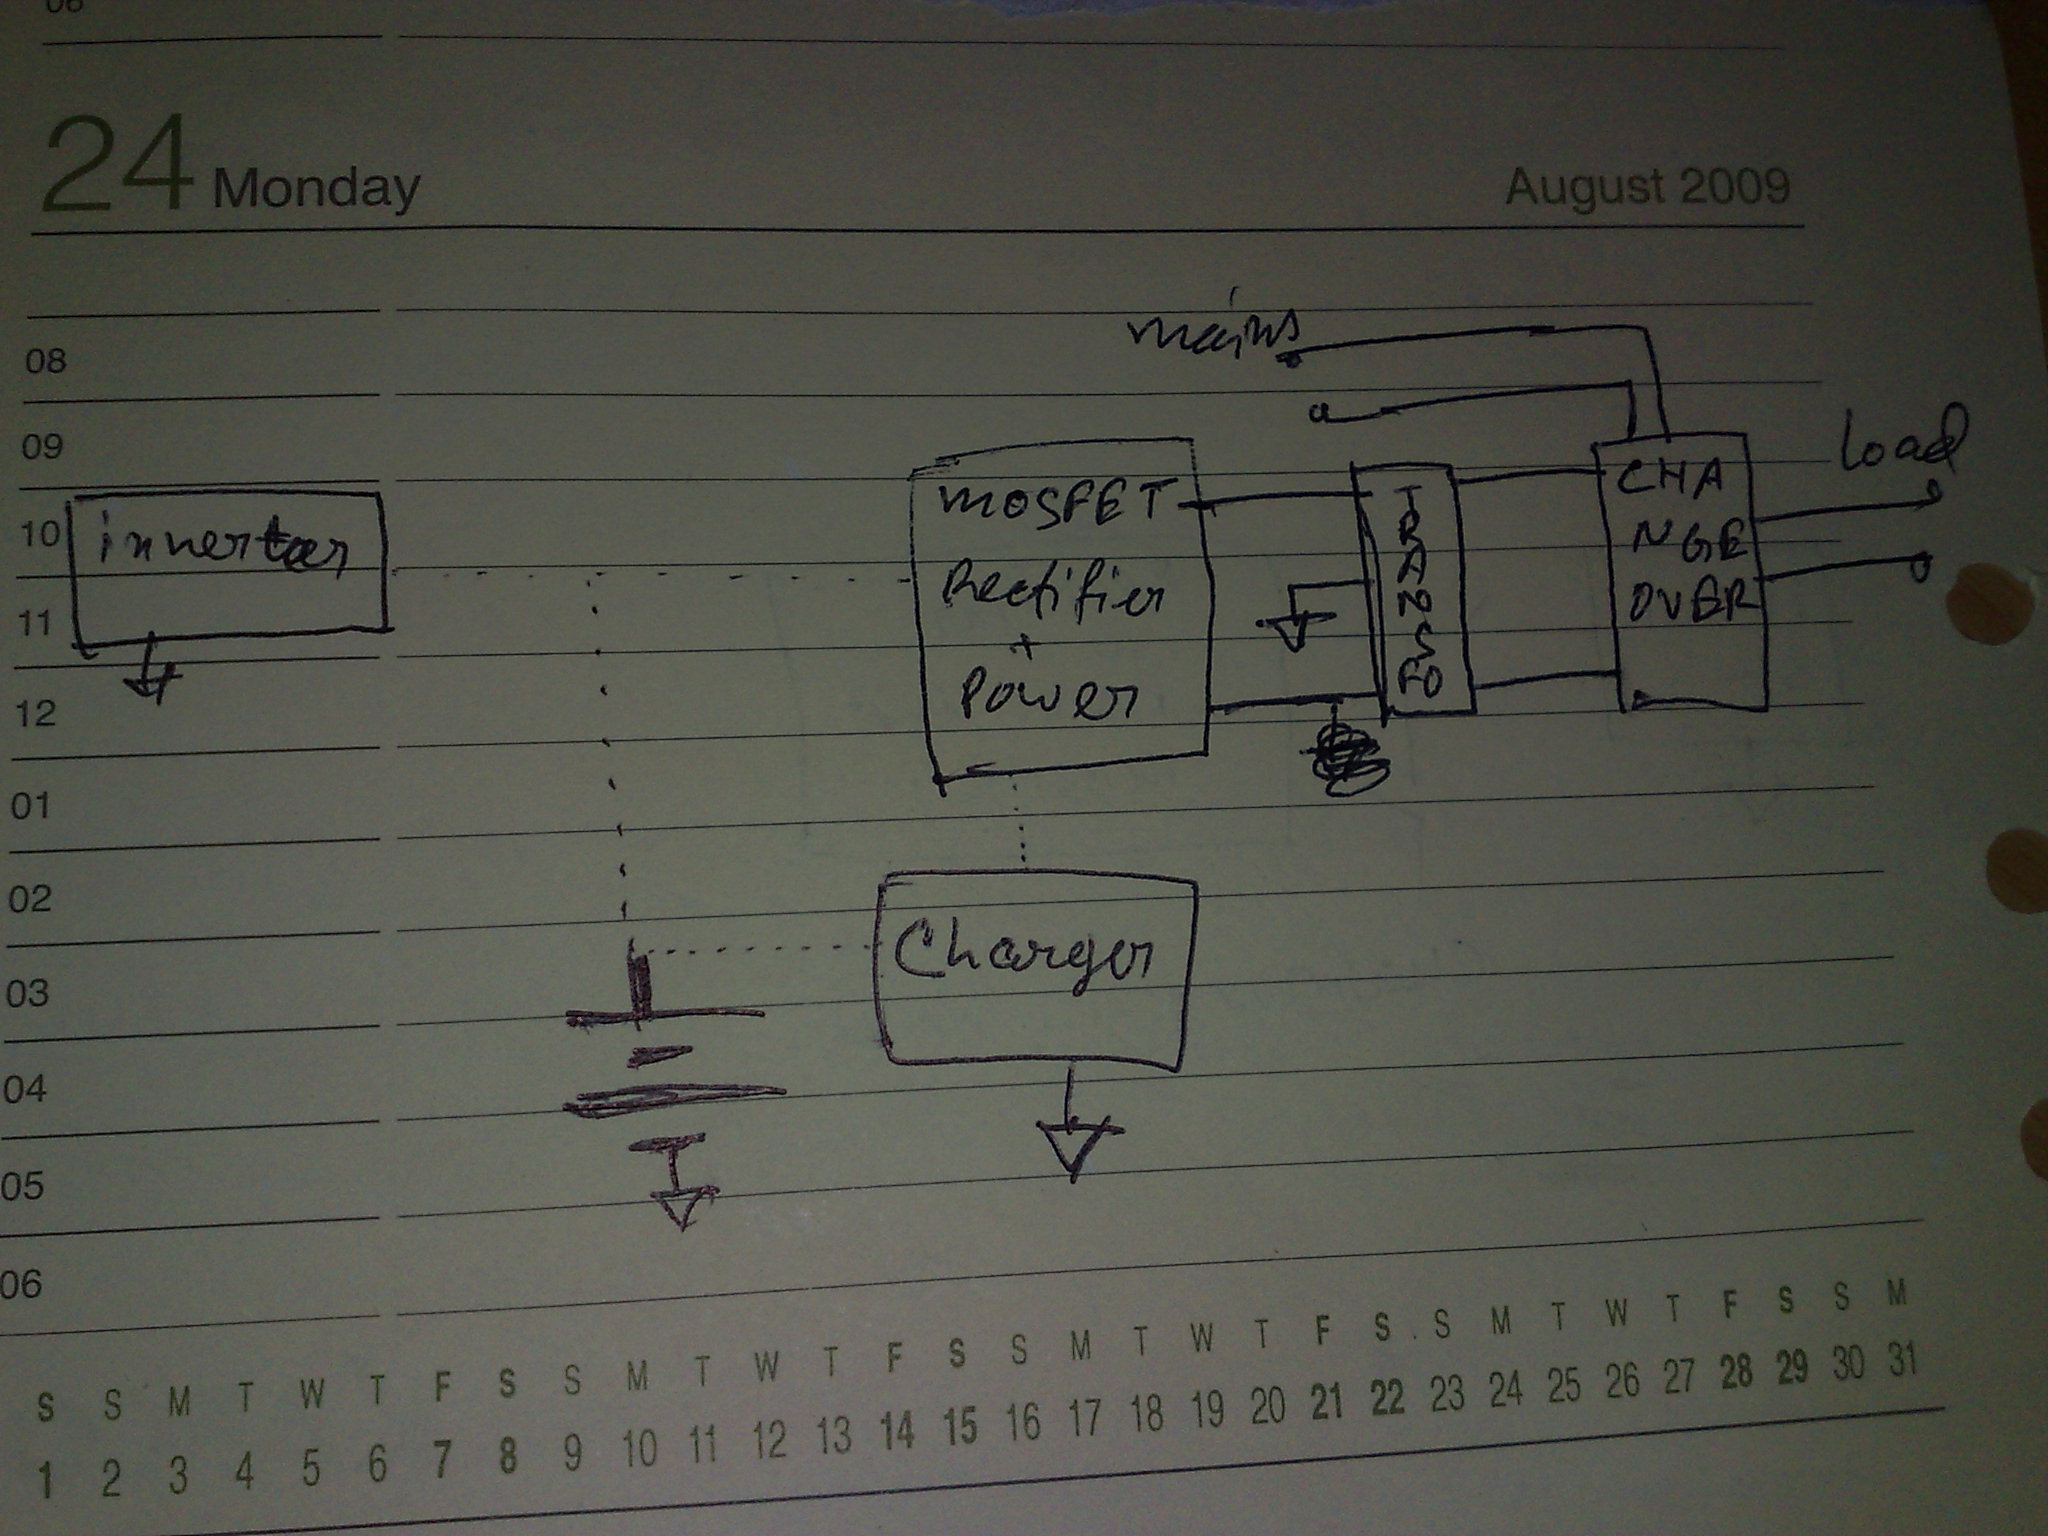 06
24 Monday
August 2009
mains
08
09
load
10
inverter
MOSFET
Rectifier
+
Power
TRANSFO
CHA
NGE
OVER
11
12
01
02
Charger
03
04
05
06
S S M T W T F S S M T W T F S S M T W T F S S M T W T F S S M
1 2 3 4 5 6 7 8 9 10 11 12 13 14 15 16 17 18 19 20 21 22 23 24 25 26 27 28 29 30 31